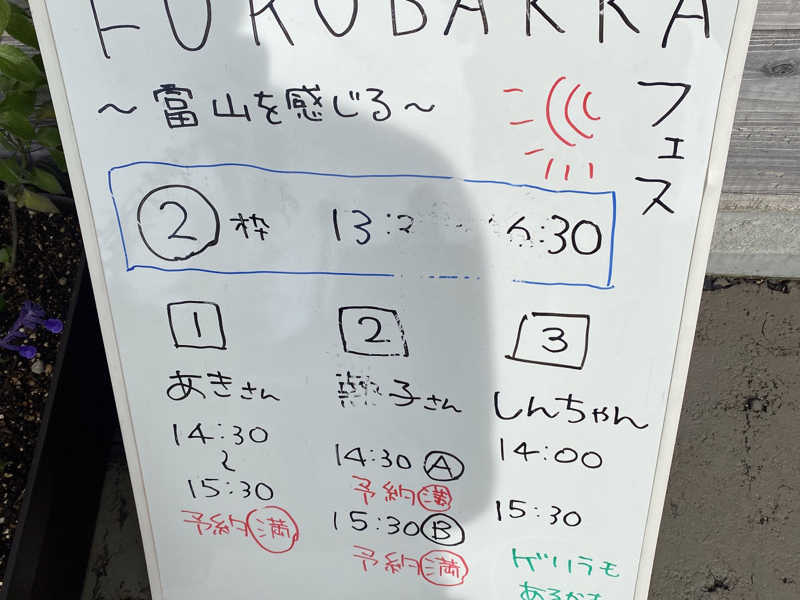 FUKUBAKKA
フェス
〜富山を感じる〜
② 枠 13:2 6:30
1
あきさん
14:30
〜
15:30
予約満
2
子さん
14:30 Ⓐ
予約満
15:30 Ⓑ
予約満
3
しんちゃん
14:00
15:30
ゲリラも
あるかも